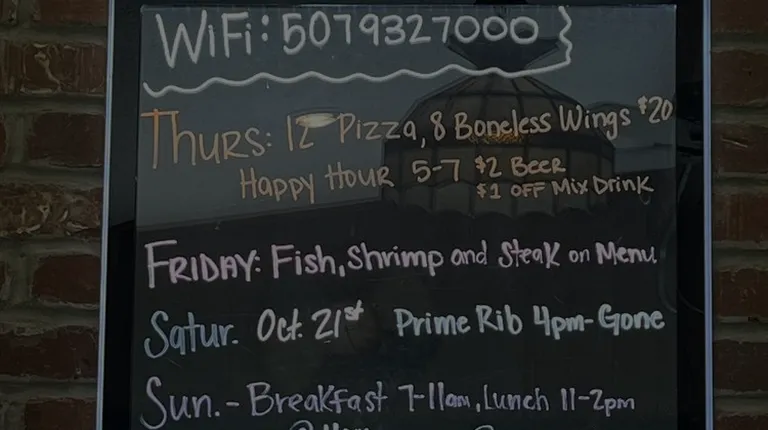 WiFi: 5079327000
Thurs: 12" Pizza, 8 Boneless Wings $20
Happy Hour 5-7 $2 Beer
$1 off Mix Drink
Friday: Fish, Shrimp and Steak on Menu
Satur. Oct. 21st Prime Rib 4pm-Gone
Sun.- Breakfast 7-11am, Lunch 11-2pm